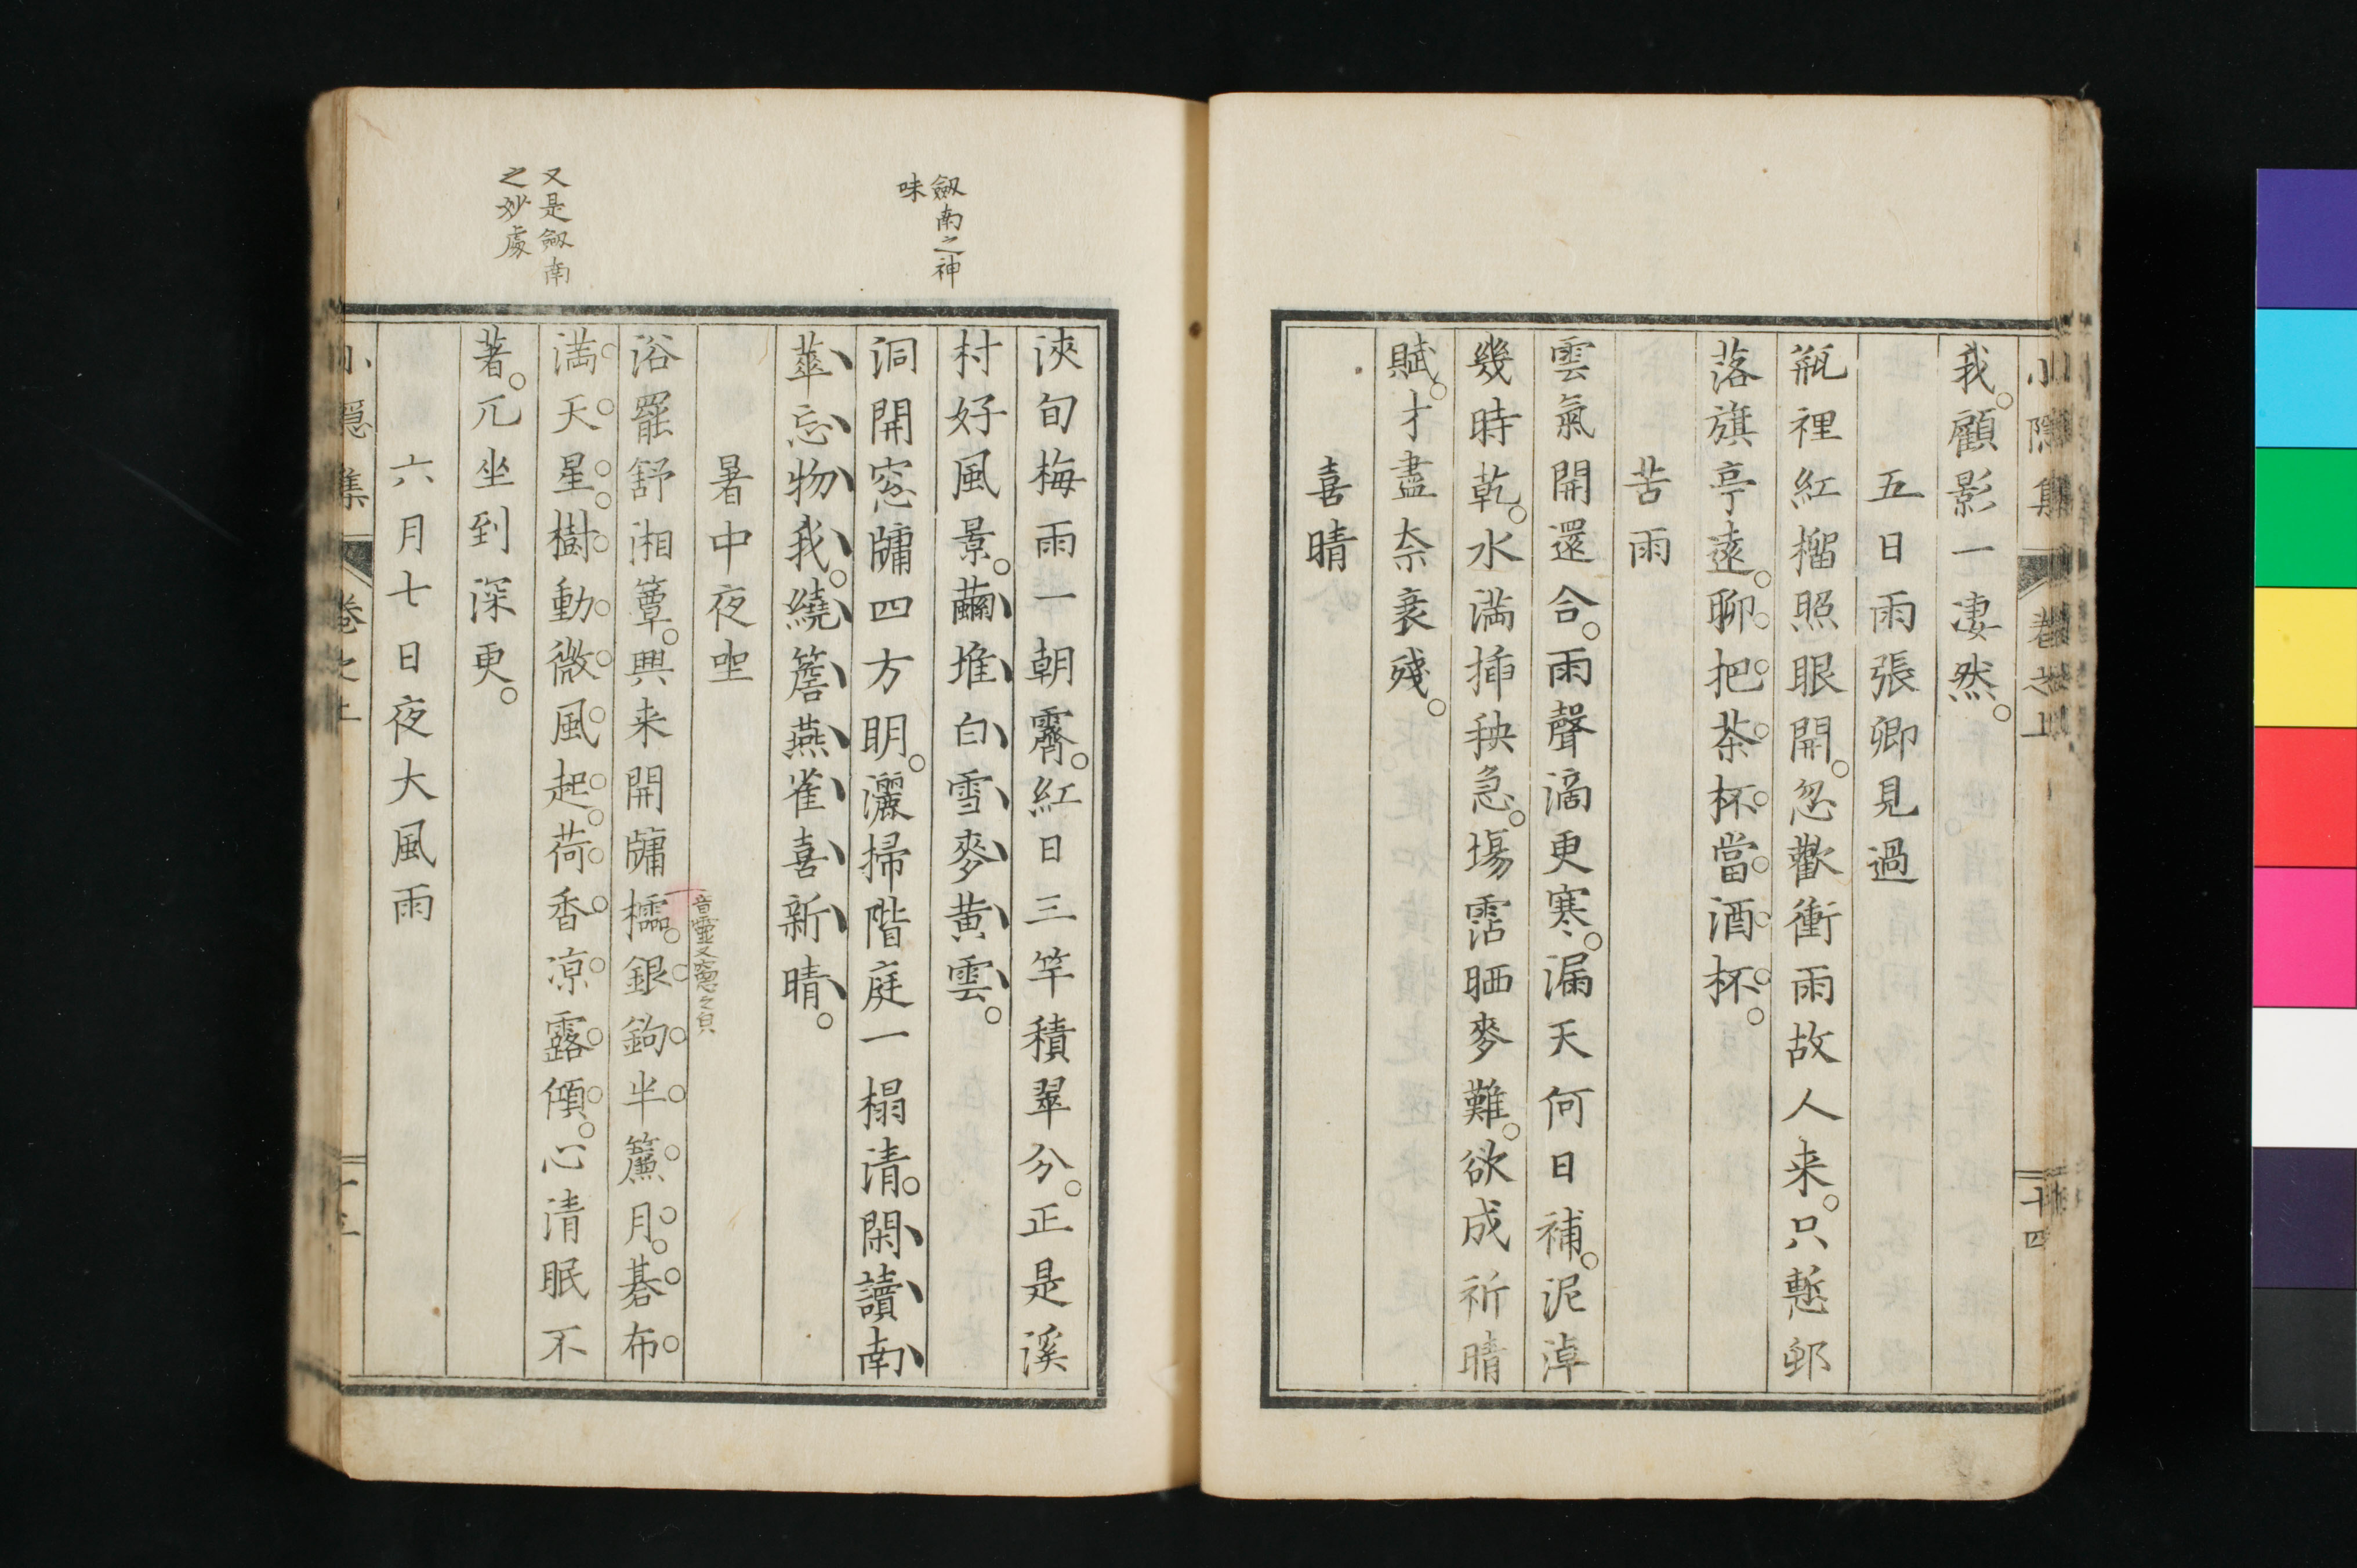 小隱集 卷之上 十四
我。顧影一凄然。
五日雨張卿見過
瓶裡紅榴照眼開。忽歡衝雨故人来。只慙邨
落旗亭遠。聊把茶杯當酒杯。
苦雨
雲氣開還合。雨聲滴更寒。漏天何日補。泥淖
幾時乾。水満挿秧急。塲霑晒麥難。欲成祈晴
賦。才盡奈衰殘。
喜晴
浹旬梅雨一朝霽。紅日三竿積翠分。正是溪
村好風景。繭堆白雪麥黄雲。
洞開窓牗四方明。灑掃階庭一榻清。閑讀南
華忘物我。繞簷燕雀喜新晴。
暑中夜坐
浴罷舒湘簟。興来開牗櫺。銀鉤半簾月。碁布
満天星。樹動微風起。荷香凉露傾。心清眠不
著。兀坐到深更。
六月七日夜大風雨
劔南之神
味
又是劔南
之妙處
音靈又窓之
小隱集 卷之上